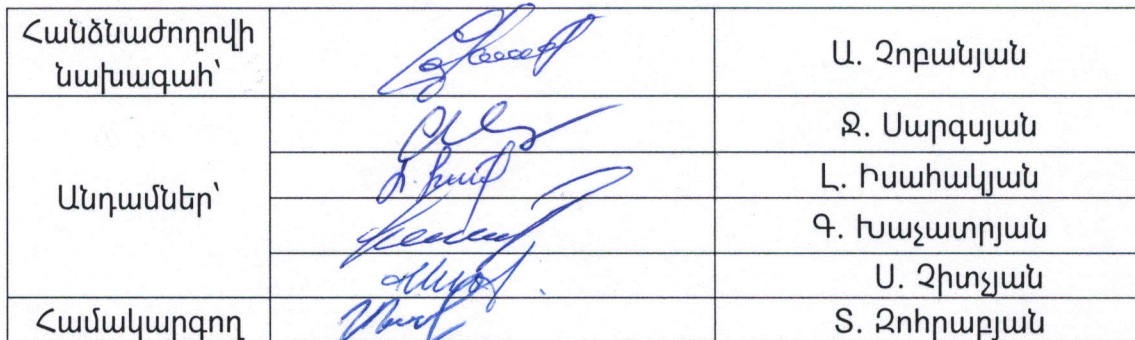 Հանձնաժողովի
նախագահ՝
Ա. Չոբանյան
Անդամներ՝
Ջ. Սարգսյան
Լ. Իսահակյան
Գ. Խաչատրյան
Ս. Չիտչյան
Համակարգող
Տ. Զոհրաբյան